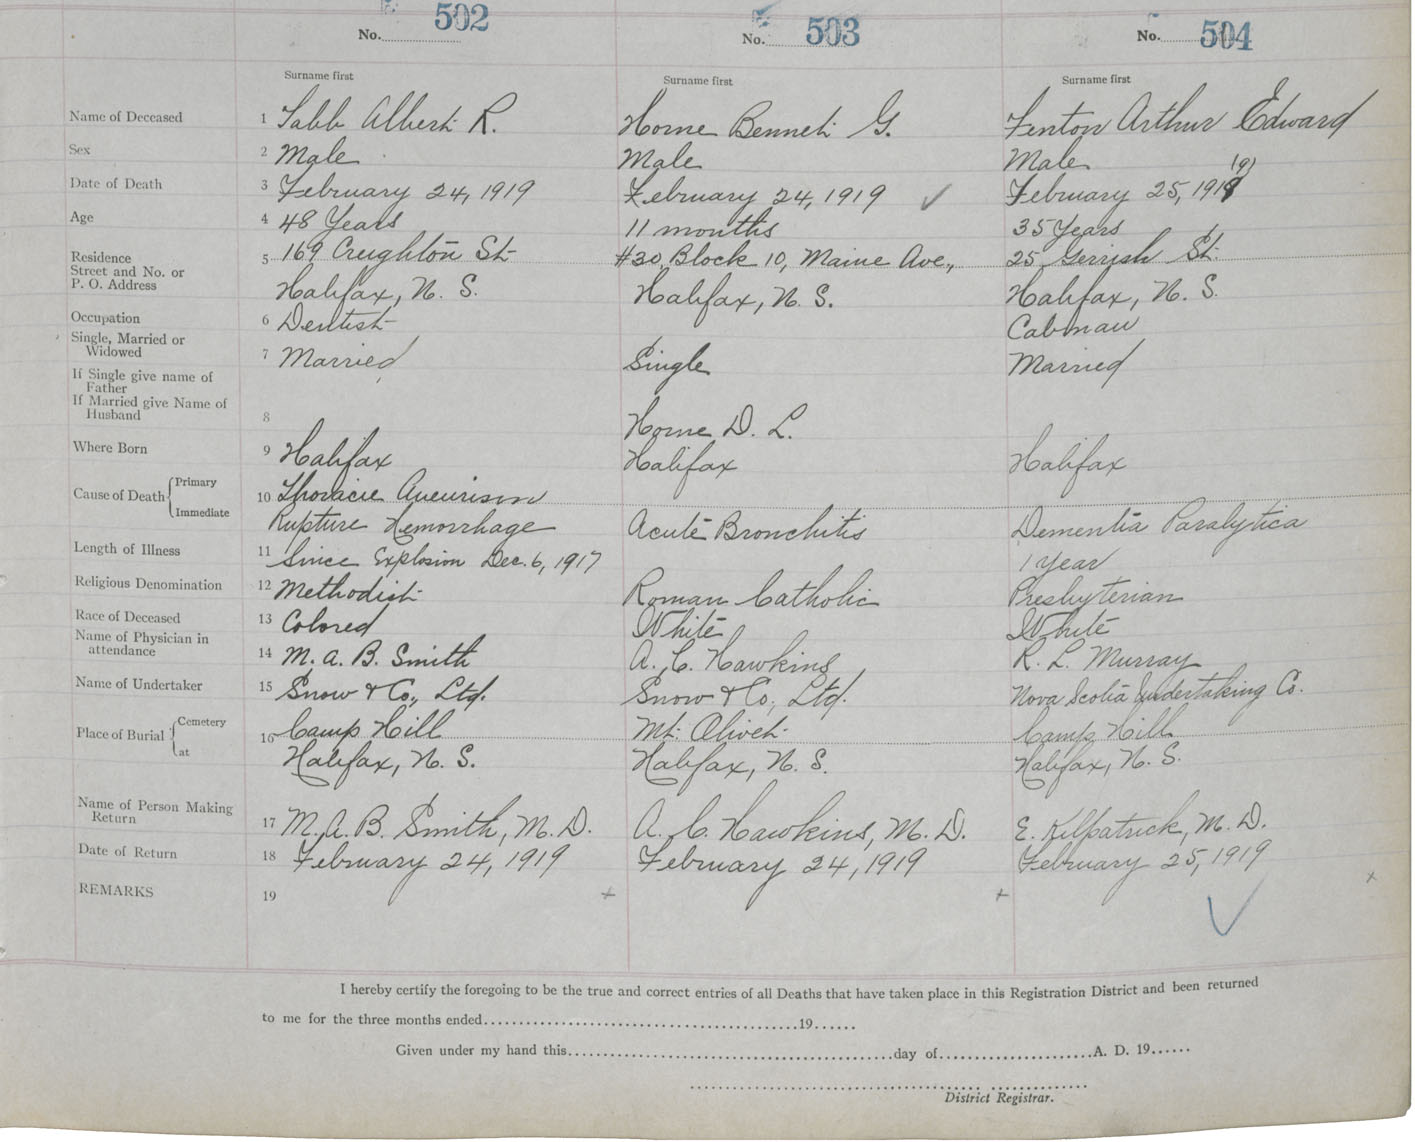 No. 502 No. 503 No. 504
Surname first Surname first Surname first
Name of Deceased 1 Tabb Albert R. Horne Bennett G. Fenton Arthur Edward
Sex 2 Male Male Male
Date of Death 3 February 24, 1919 February 24, 1919 February 25, 1919
Age 4 48 Years 11 months 35 Years
Residence
Street and No. or 5 169 Creighton St #30, Block 10, Maine Ave., 25 Gerrish St.
P. O. Address Halifax, N. S. Halifax, N. S. Halifax, N. S.
Occupation 6 Dentist Cabman
Single, Married or
Widowed 7 Married Single Married
If Single give name of
Father
If Married give Name of
Husband 8 Horne D. L.
Where Born 9 Halifax Halifax Halifax
Cause of Death Primary 10 Thoracic Aneurism
Immediate Rupture Hemorrhage Acute Bronchitis Dementia Paralytica
Length of Illness 11 Since Explosion Dec. 6, 1917 1 Year
Religious Denomination 12 Methodist Roman Catholic Presbyterian
Race of Deceased 13 Colored White White
Name of Physician in
attendance 14 M. A. B. Smith A. C. Hawkins R. L. Murray
Name of Undertaker 15 Snow & Co., Ltd. Snow & Co., Ltd. Nova Scotia Undertaking Co.
Place of Burial Cemetery 16 Camp Hill Mt. Olivet Camp Hill
at Halifax, N. S. Halifax, N. S. Halifax, N. S.
Name of Person Making
Return 17 M. A. B. Smith, M. D. A. C. Hawkins, M. D. E. Kilpatrick, M. D.
Date of Return 18 February 24, 1919 February 24, 1919 February 25, 1919
REMARKS 19
I hereby certify the foregoing to be the true and correct entries of all Deaths that have taken place in this Registration District and been returned
to me for the three months ended 19
Given under my hand this day of A. D. 19
District Registrar.